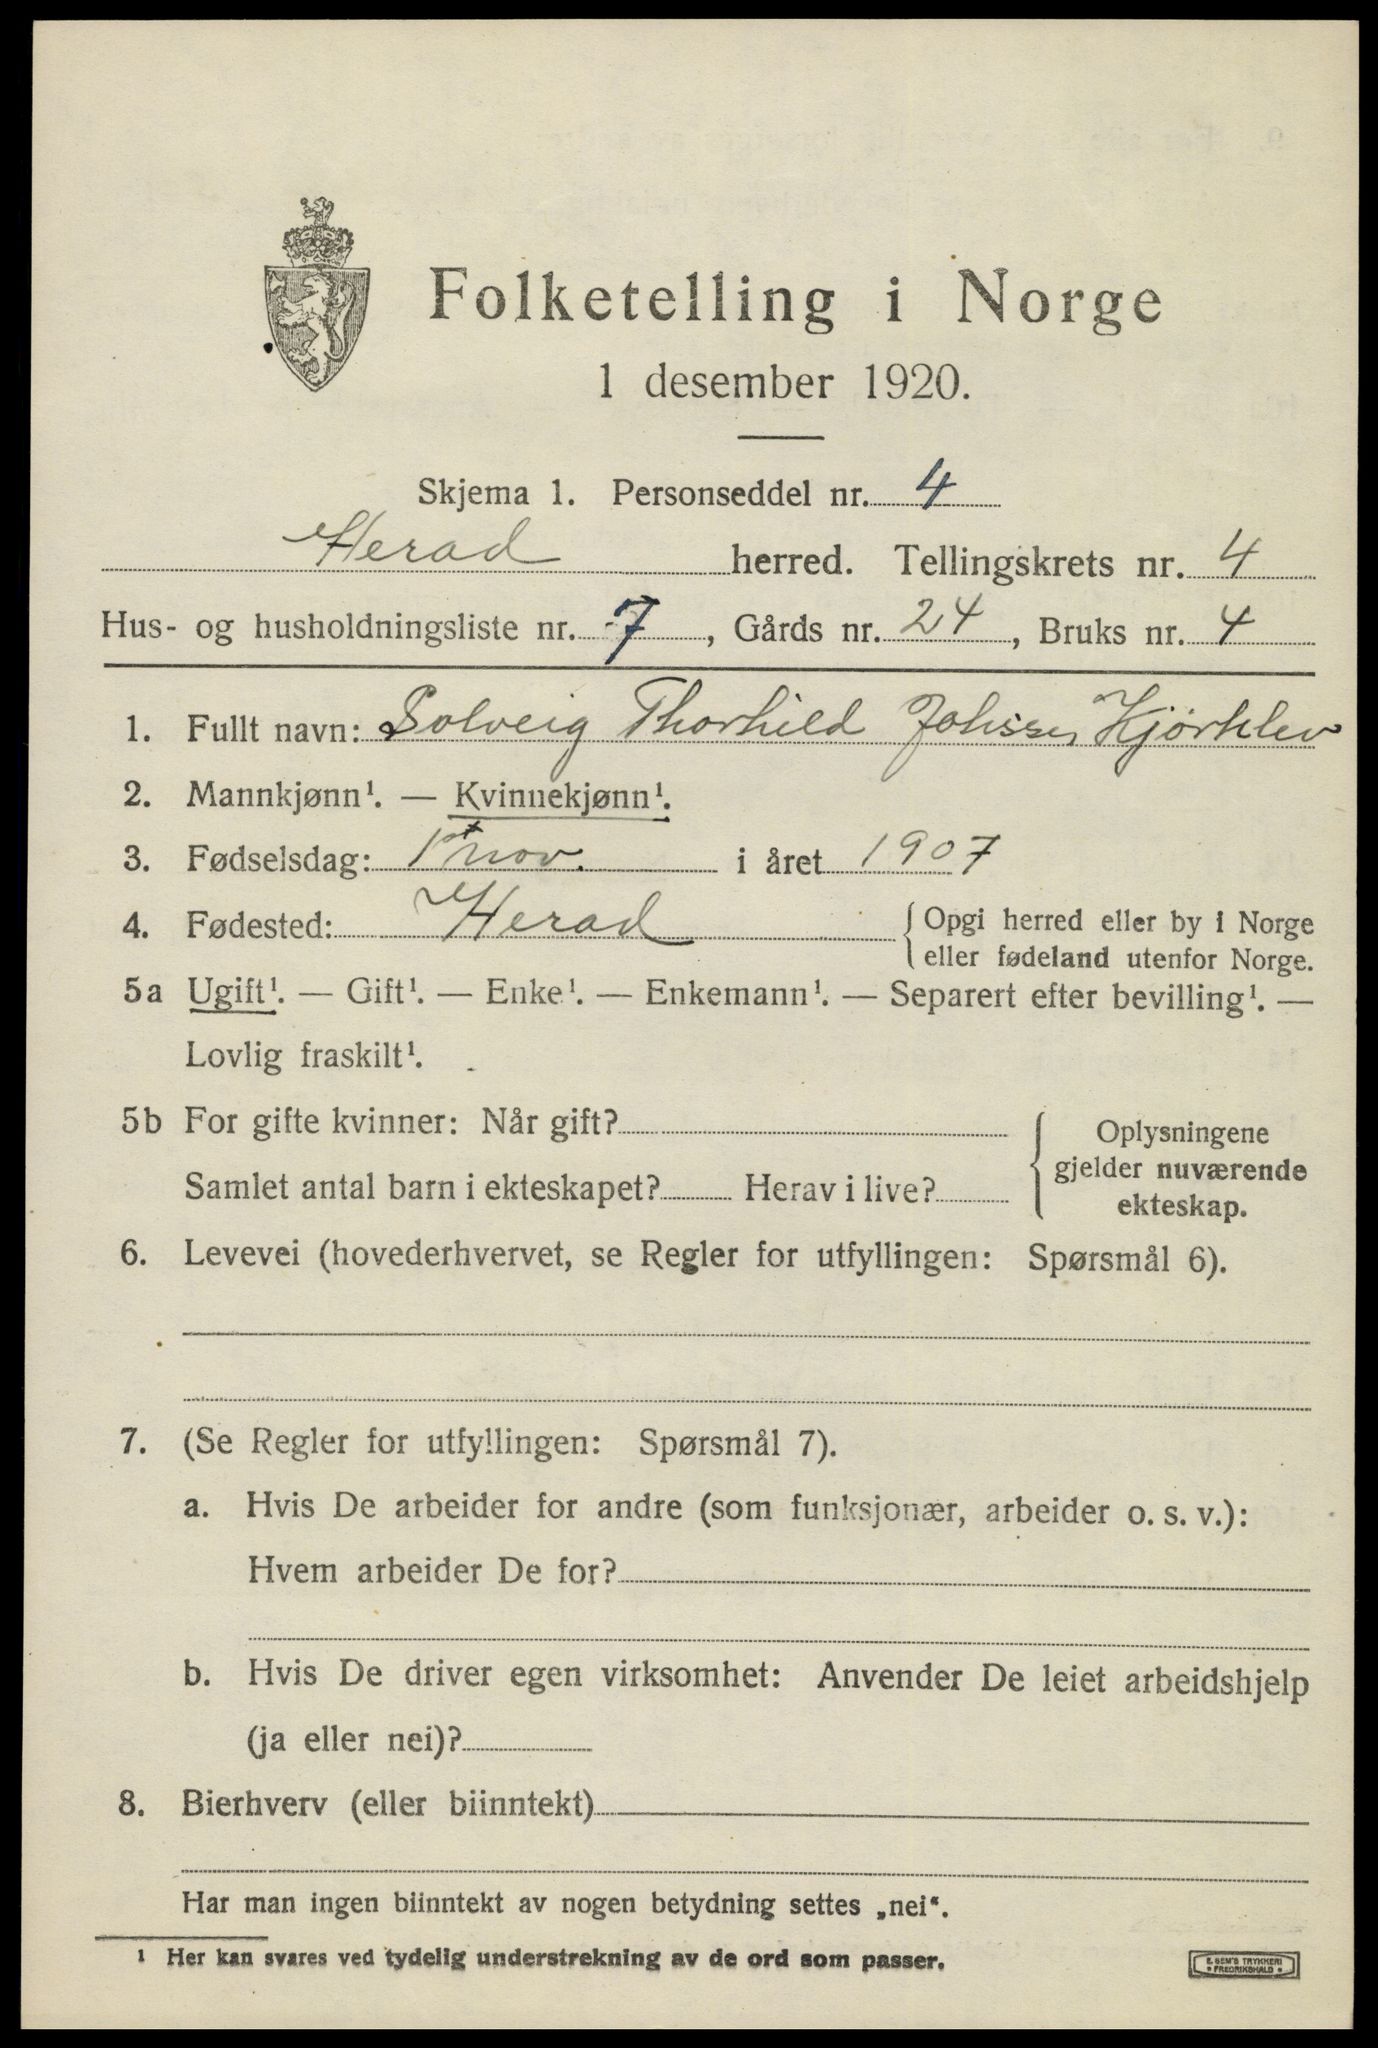 Folketelling i Norge
1 desember 1920.
Skjema 1. Personseddel nr. 4
Herad herred. Tellingskrets nr. 4
Hus- og husholdningsliste nr. 7, Gårds nr. 24, Bruks nr. 4
1. Fullt navn: Solveig Thorhild Kjørklev
2. Mannkjønn¹. — Kvinnekjønn¹.
3. Fødselsdag: 1st nov. i året 1907
4. Fødested: Herad { Opgi herred eller by i Norge
eller fødeland utenfor Norge.
5a Ugift¹. — Gift¹. — Enke¹. — Enkemann¹. — Separert efter bevilling¹. —
Lovlig fraskilt¹.
5b For gifte kvinner: Når gift?
Samlet antal barn i ekteskapet? Herav i live?
Oplysningene
gjelder nuværende
ekteskap.
6. Levevei (hovederhvervet, se Regler for utfyllingen: Spørsmål 6).
7. (Se Regler for utfyllingen: Spørsmål 7).
a. Hvis De arbeider for andre (som funksjonær, arbeider o. s. v.):
Hvem arbeider De for?
b. Hvis De driver egen virksomhet: Anvender De leiet arbeidshjelp
(ja eller nei)?
8. Bierhverv (eller biinntekt)
Har man ingen biinntekt av nogen betydning settes „nei“.
¹ Her kan svares ved tydelig understrekning av de ord som passer.
E. SEM'S TRYKKERI
FREDRIKSHALD